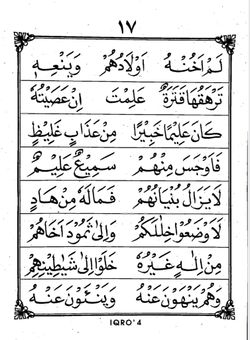 ١٧
لَمْ اَخُنْهُ اَوْلَادُهُمْ وَيَنْعِهٖ
تَرْهَقُهَا قَتَرَةٌ عَلِمْتَ اِنْ عَصَيْتُهٗ
كَانَ عَلِيْمًا خَبِيْرًا مِنْ عَذَابٍ غَلِيْظٍ
فَاَوْجَسَ مِنْهُمْ سَمِيْعٌ عَلِيْمٌ
لَا يَزَالُ بُنْيَانُهُمْ فَمَالَهٗ مِنْ هَادٍ
لَاَوْضَعُوْا خِلٰلَكُمْ وَاِلٰى ثَمُوْدَ اَخَاهُمْ
مِنْ اِلٰهٍ غَيْرُهٗ خَلَوْا اِلٰى شَيٰطِيْنِهِمْ
وَهُمْ يَنْهَوْنَ عَنْهُ وَيَنْئَوْنَ عَنْهُ
IQRO'4